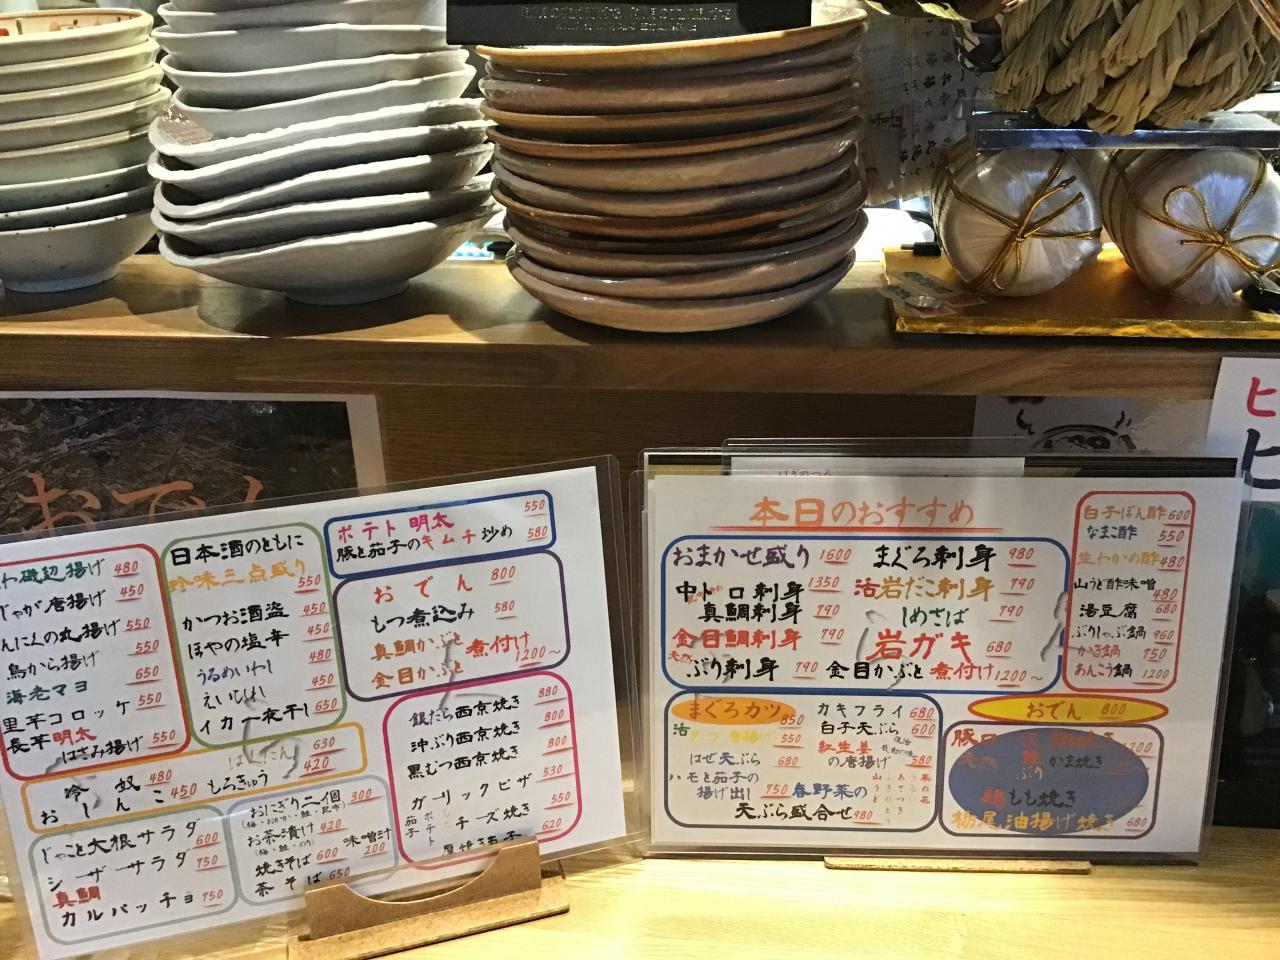 おでん
わ磯辺揚げ 480
じゃが唐揚げ 450
んにくの丸揚げ 550
鳥から揚げ 550
海老マヨ 650
里芋コロッケ 550
長芋明太
はさみ揚げ 550
日本酒のともに
珍味三点盛り 550
かつお酒盗 450
ほやの塩辛 450
うるめいわし 480
えいひれ 450
イカ一夜干し 650
ポテト明太 550
豚と茄子のキムチ炒め 580
おでん 800
もつ煮込み 580
真鯛かぶと
金目かぶと 煮付け 1200〜
銀だら西京焼き 880
沖ぶり西京焼き 800
黒むつ西京焼き 800
ガーリックピザ 530
茄子
ポテト
チーズ焼き 550
620
630
冷奴 480
おしんこ 450
もろきゅう 420
じゃこと大根サラダ 600
シーザーサラダ 750
真鯛
カルパッチョ 750
おにぎり二個 300
(梅・おかか・鮭・昆布)
お茶漬け 420
(梅・鮭・のり)
味噌汁 200
焼きそば 600
茶そば 650
本日のおすすめ
おまかせ盛り 1600
中トロ刺身 1350
真鯛刺身 790
金目鯛刺身 790
天然
ぶり刺身 790
まぐろ刺身 980
活岩だこ刺身 790
しめさば 790
岩ガキ 680
金目かぶと煮付け 1200〜
白子ぽん酢 600
なまこ酢 550
生わかめ酢 480
山うど酢味噌 480
湯豆腐 680
ぶりしゃぶ鍋 960
かき鍋 750
あんこう鍋 1200
まぐろカツ 850
活タコ唐揚げ 550
はぜ天ぷら 680
ハモと茄子の
揚げ出し 750
カキフライ 680
白子天ぷら 600
紅生姜
の唐揚げ 580
春野菜の
天ぷら盛合せ 980
おでん 800
かま焼き
ぶり
鶏もも焼き
栃尾油揚げ焼き 680
ヒ
ヒ